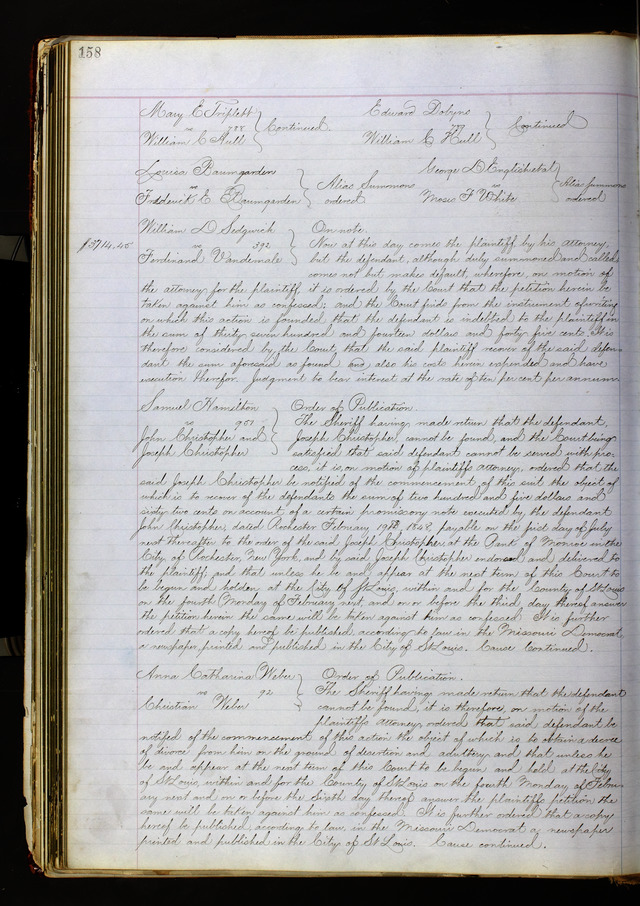 158
Mary E Triplett
vs 788 Continued
William C Hall
Edward Dobyns
vs Continued
William C Hull
Louisa Baumgarden
vs Alias Summons
Frederick E Baumgarden ordered
George D
vs Alias Summons
Moses F White ordered
William D Sedgwick On note.
$3714.45 vs 592 Now at this day comes the plaintiff by his attorney,
Ferdinand Vandemale but the defendant, although duly summoned and called
comes not but makes default, wherefore, on motion of
the attorney for the plaintiff, it is ordered by the Court that the petition herein be
taken against him as confessed; and the Court finds from the instrument of writing
on which this action is founded, that the defendant is indebted to the plaintiff in
the sum of thirty seven hundred and fourteen dollars and forty five cents. It is
therefore considered by the Court, that the said plaintiff recover of the said defen-
dant the sum aforesaid as found and also his costs herein expended and have
execution therefor. Judgment to bear interest at the rate of ten per cent per annum.
Samuel Hamilton Order of Publication.
vs 901 The Sheriff having made return that the defendant,
John Christopher and Joseph Christopher, cannot be found, and the Court being
Joseph Christopher satisfied that said defendant cannot be served with pro-
cess, it is, on motion of plaintiffs attorney, ordered that the
said Joseph Christopher be notified of the commencement of this suit the object of
which is to recover of the defendants the sum of two hundred and five dollars and
sixty two cents on account of a certain promissory note executed by the defendant
John Christopher, dated Rochester February 19th 1848, payable on the first day of July
next thereafter to the order of the said Joseph Christopher, at the Bank of Monroe in the
City of Rochester, New York, and by said Joseph Christopher endorsed and delivered to
the plaintiff; and that unless he be and appear at the next term of this Court to
be begun and holden at the City of St Louis, within and for the County of St Louis
on the fourth Monday of February next, and on or before the third day thereof answer
the petition herein the same will be taken against him as confessed. It is further
ordered that a copy hereof be published, according to law in the Missouri Democrat
a newspaper, printed and published in the City of St Louis. Cause Continued.
Anna Catharina Weber Order of Publication.
vs 92 The Sheriff having made return that the defendant
Christian Weber cannot be found, it is therefore, on motion of the
plaintiffs attorney, ordered that said defendant be
notified of the commencement of this action the object of which is to obtain a decree
of divorce from him on the ground of desertion and adultery, and that unless he
be and appear at the next term of this Court to be begun and held at the City
of St Louis, within and for the County of St Louis on the fourth Monday of Febru-
ary next and on or before the Sixth day thereof answer the plaintiffs petition the
same will be taken against him as confessed. It is further ordered that a copy
hereof be published, according to law, in the Missouri Democrat a newspaper
printed and published in the City of St Louis. Cause continued.